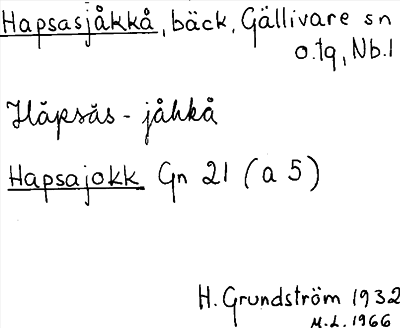 Hapsasjåkkå, bäck, Gällivare sn
o. tg, Nb. l
Hăpsăs - jåhkå
Hapsajokk Gn 21 (a 5)
H. Grundström 1932
M.L. 1966